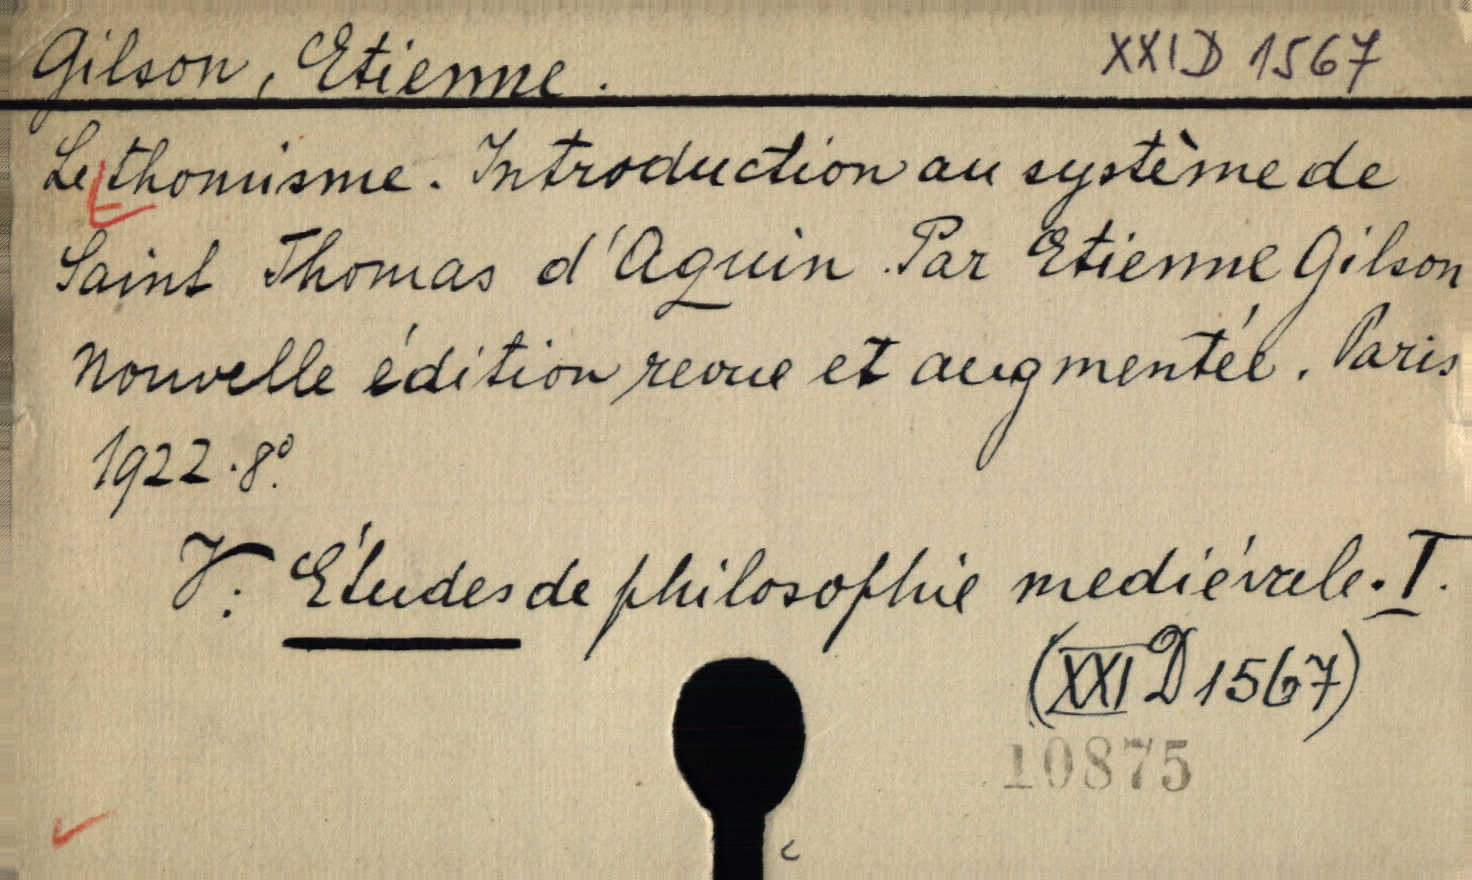 Gilson, Etienne. XXI D 1567
Le thomisme. Introduction au système de
Saint Thomas d'Aquin. Par Etienne Gilson
Nouvelle édition revue et augmentée. Paris
1922. 8º.
V: Études de philosophie mediévale. I.
(XXI D 1567)
10875
c